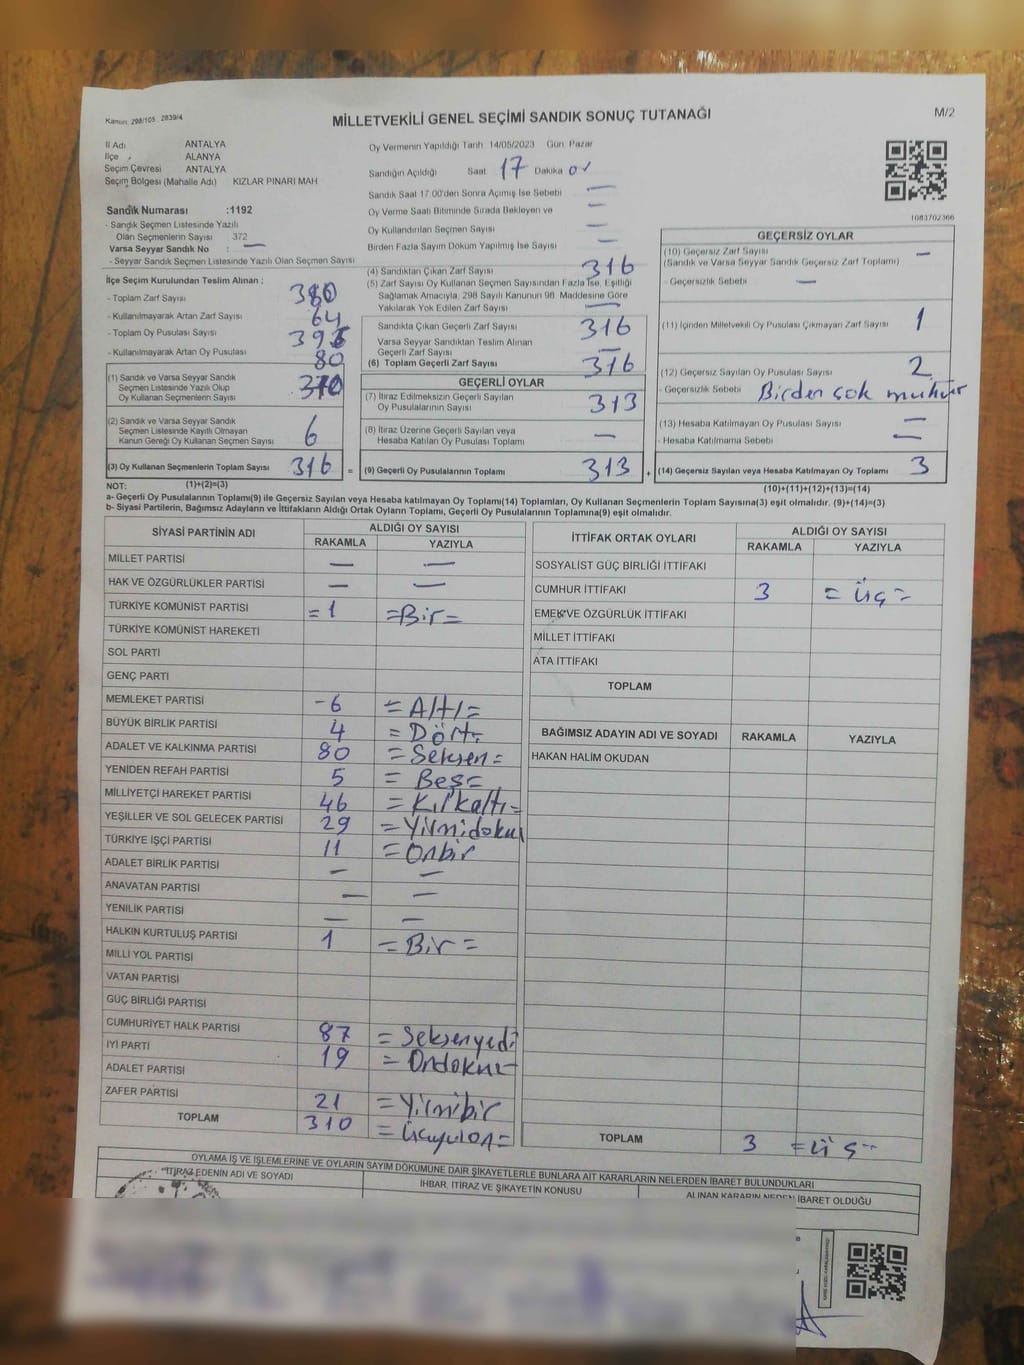 Kanun: 298/105 2839/4
MİLLETVEKİLİ GENEL SEÇİMİ SANDIK SONUÇ TUTANAĞI
M/2
İl Adı ANTALYA
İlçe ALANYA
Seçim Çevresi ANTALYA
Seçim Bölgesi (Mahalle Adı) KIZLAR PINARI MAH
Sandık Numarası :1192
- Sandık Seçmen Listesinde Yazılı
Olan Seçmenlerin Sayısı 372
Varsa Seyyar Sandık No : —
- Seyyar Sandık Seçmen Listesinde Yazılı Olan Seçmen Sayısı
Oy Vermenin Yapıldığı Tarih 14/05/2023 Gün Pazar
Sandığın Açıldığı Saat 17 Dakika 01
Sandık Saat 17:00'den Sonra Açılmış İse Sebebi —
Oy Verme Saati Bitiminde Sırada Bekleyen ve —
Oy Kullandırılan Seçmen Sayısı
Birden Fazla Sayım Döküm Yapılmış İse Sayısı —
1083702366
İlçe Seçim Kurulundan Teslim Alınan :
- Toplam Zarf Sayısı
- Kullanılmayarak Artan Zarf Sayısı 64
- Toplam Oy Pusulası Sayısı
- Kullanılmayarak Artan Oy Pusulası 80
(1) Sandık ve Varsa Seyyar Sandık
Seçmen Listesinde Yazılı Olup
Oy Kullanan Seçmenlerin Sayısı
(2) Sandık ve Varsa Seyyar Sandık
Seçmen Listesinde Kayıtlı Olmayan
Kanun Gereği Oy Kullanan Seçmen Sayısı 6
(3) Oy Kullanan Seçmenlerin Toplam Sayısı 316 =
(1)+(2)=(3)
(4) Sandıktan Çıkan Zarf Sayısı 316
(5) Zarf Sayısı Oy Kullanan Seçmen Sayısından Fazla İse, Eşitliği
Sağlamak Amacıyla, 298 Sayılı Kanunun 98. Maddesine Göre
Yakılarak Yok Edilen Zarf Sayısı
Sandıkta Çıkan Geçerli Zarf Sayısı 316
Varsa Seyyar Sandıktan Teslim Alınan
Geçerli Zarf Sayısı —
(6) Toplam Geçerli Zarf Sayısı 316
GEÇERLİ OYLAR
(7) İtiraz Edilmeksizin Geçerli Sayılan
Oy Pusulalarının Sayısı 313
(8) İtiraz Üzerine Geçerli Sayılan veya
Hesaba Katılan Oy Pusulası Toplamı —
(9) Geçerli Oy Pusulalarının Toplamı 313 +
GEÇERSİZ OYLAR
(10) Geçersiz Zarf Sayısı —
(Sandık ve Varsa Seyyar Sandık Geçersiz Zarf Toplamı)
- Geçersizlik Sebebi —
(11) İçinden Milletvekili Oy Pusulası Çıkmayan Zarf Sayısı 1
(12) Geçersiz Sayılan Oy Pusulası Sayısı 2
- Geçersizlik Sebebi Birden çok mühür
(13) Hesaba Katılmayan Oy Pusulası Sayısı —
- Hesaba Katılmama Sebebi —
(14) Geçersiz Sayılan veya Hesaba Katılmayan Oy Toplamı 3
(10)+(11)+(12)+(13)=(14)
NOT:
a- Geçerli Oy Pusulalarının Toplamı(9) ile Geçersiz Sayılan veya Hesaba katılmayan Oy Toplamı(14) Toplamları, Oy Kullanan Seçmenlerin Toplam Sayısına(3) eşit olmalıdır. (9)+(14)=(3)
b- Siyasi Partilerin, Bağımsız Adayların ve İttifakların Aldığı Ortak Oyların Toplamı, Geçerli Oy Pusulalarının Toplamına(9) eşit olmalıdır.
SİYASİ PARTİNİN ADI ALDIĞI OY SAYISI
RAKAMLA YAZIYLA
MİLLET PARTİSİ — —
HAK VE ÖZGÜRLÜKLER PARTİSİ — —
TÜRKİYE KOMÜNİST PARTİSİ =1 =Bir=
TÜRKİYE KOMÜNİST HAREKETİ
SOL PARTİ
GENÇ PARTİ
MEMLEKET PARTİSİ -6 =Altı=
BÜYÜK BİRLİK PARTİSİ 4 =Dört=
ADALET VE KALKINMA PARTİSİ 80 =Seksen=
YENİDEN REFAH PARTİSİ 5 =Beş=
MİLLİYETÇİ HAREKET PARTİSİ 46 =Kırkaltı=
YEŞİLLER VE SOL GELECEK PARTİSİ 29 =Yirmidokuz
TÜRKİYE İŞÇİ PARTİSİ 11 =Onbir
ADALET BİRLİK PARTİSİ — —
ANAVATAN PARTİSİ — —
YENİLİK PARTİSİ — —
HALKIN KURTULUŞ PARTİSİ 1 =Bir=
MİLLİ YOL PARTİSİ
VATAN PARTİSİ
GÜÇ BİRLİĞİ PARTİSİ
CUMHURİYET HALK PARTİSİ 87 =Seksenyedi
İYİ PARTİ 19 =Ondokuz
ADALET PARTİSİ
ZAFER PARTİSİ 21 =Yirmibir
TOPLAM 310 =Üçyüzon=
İTTİFAK ORTAK OYLARI ALDIĞI OY SAYISI
RAKAMLA YAZIYLA
SOSYALİST GÜÇ BİRLİĞİ İTTİFAKI
CUMHUR İTTİFAKI 3 =Üç=
EMEK VE ÖZGÜRLÜK İTTİFAKI
MİLLET İTTİFAKI
ATA İTTİFAKI
TOPLAM
BAĞIMSIZ ADAYIN ADI VE SOYADI RAKAMLA YAZIYLA
HAKAN HALİM OKUDAN
TOPLAM 3 =Üç=
OYLAMA İŞ VE İŞLEMLERİNE VE OYLARIN SAYIM DÖKÜMÜNE DAİR ŞİKAYETLERLE BUNLARA AİT KARARLARIN NELERDEN İBARET BULUNDUKLARI
İTİRAZ EDENİN ADI VE SOYADI
İHBAR, İTİRAZ VE ŞİKAYETİN KONUSU
ALINAN KARARIN NEDEN İBARET OLDUĞU